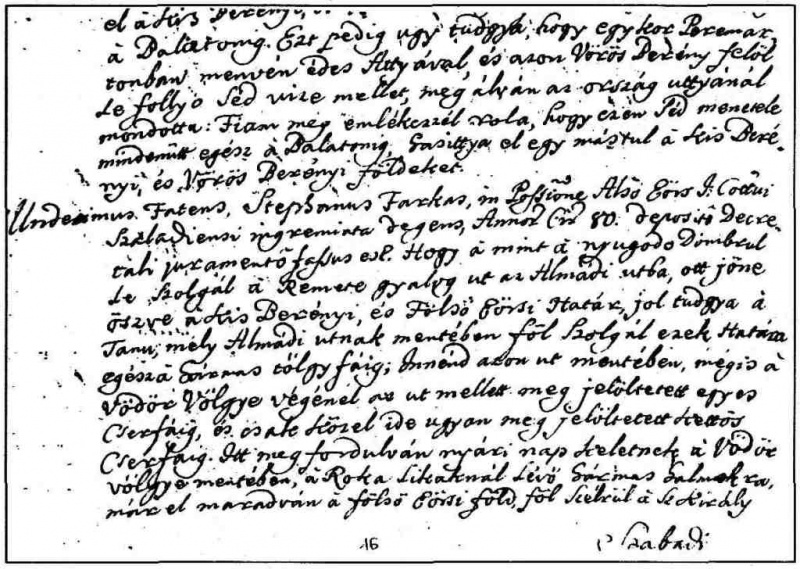 el à Kis Berényi,
à Balatonig. Ezt pedig ugÿ tudgya, hogy egÿkor Peremár,
tonban menvén édes Attyával, és azon Vörös Berény felöl
le follyo Séd vize mellet, meg álván az ország uttyánál
mondotta: Fiam meg emlékezzél rola, hogy ezen Séd menetele
mindenütt egész à Balatonig Szasittya el egy mástul à Kis Beré-
nyi, és Vörös Berényi földeket.
Undecimus Fatens, Stephanus Farkas, in Possessione Alsö Eörs I. Cottui
Szaladiensi ingremiata degens, Annor Cir 80. deposito Decre-
tali juramento fassus est. Hogy à mint à nyugodo Dombrul
le szolgál à Remete gyalog ut az Almádi utba, ott jöne
öszve à Kis Berényi, és Fölsö Eörsi Határ, jol tudgya à
Tanu, mely Almádi utnak mentében föl szolgál ezek Határa
egész à Sármás tölgy fáig; Innénd azon ut mentében, mégis à
Vödör Völgye végénél az ut mellett meg jelöltetett egyes
Cserfáig, és csak közel ide ugyan meg jelöltetett Kettös
Cserfáig. Itt meg fordulván nyári nap Keletnek à Vödör
völgye mentében, à Roka Likaknál lévö Sármás halmokra,
már el maradván à fölsö Eörsi föld, föl à Sz Király
16
Szabadi